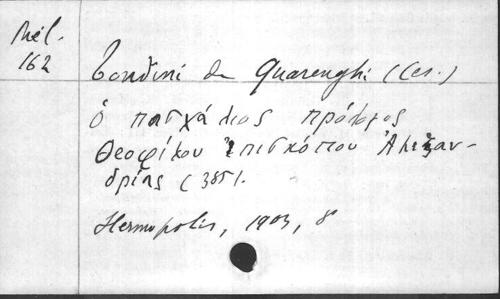 Mél.
162
Tondini de Quarenghi (Ces.)
ὁ πασχάλιος πρόλογος
Θεοφίλου ἐπισκόπου Ἀλεξαν-
δρίας (385).
Hermopolis, 1903, 8°